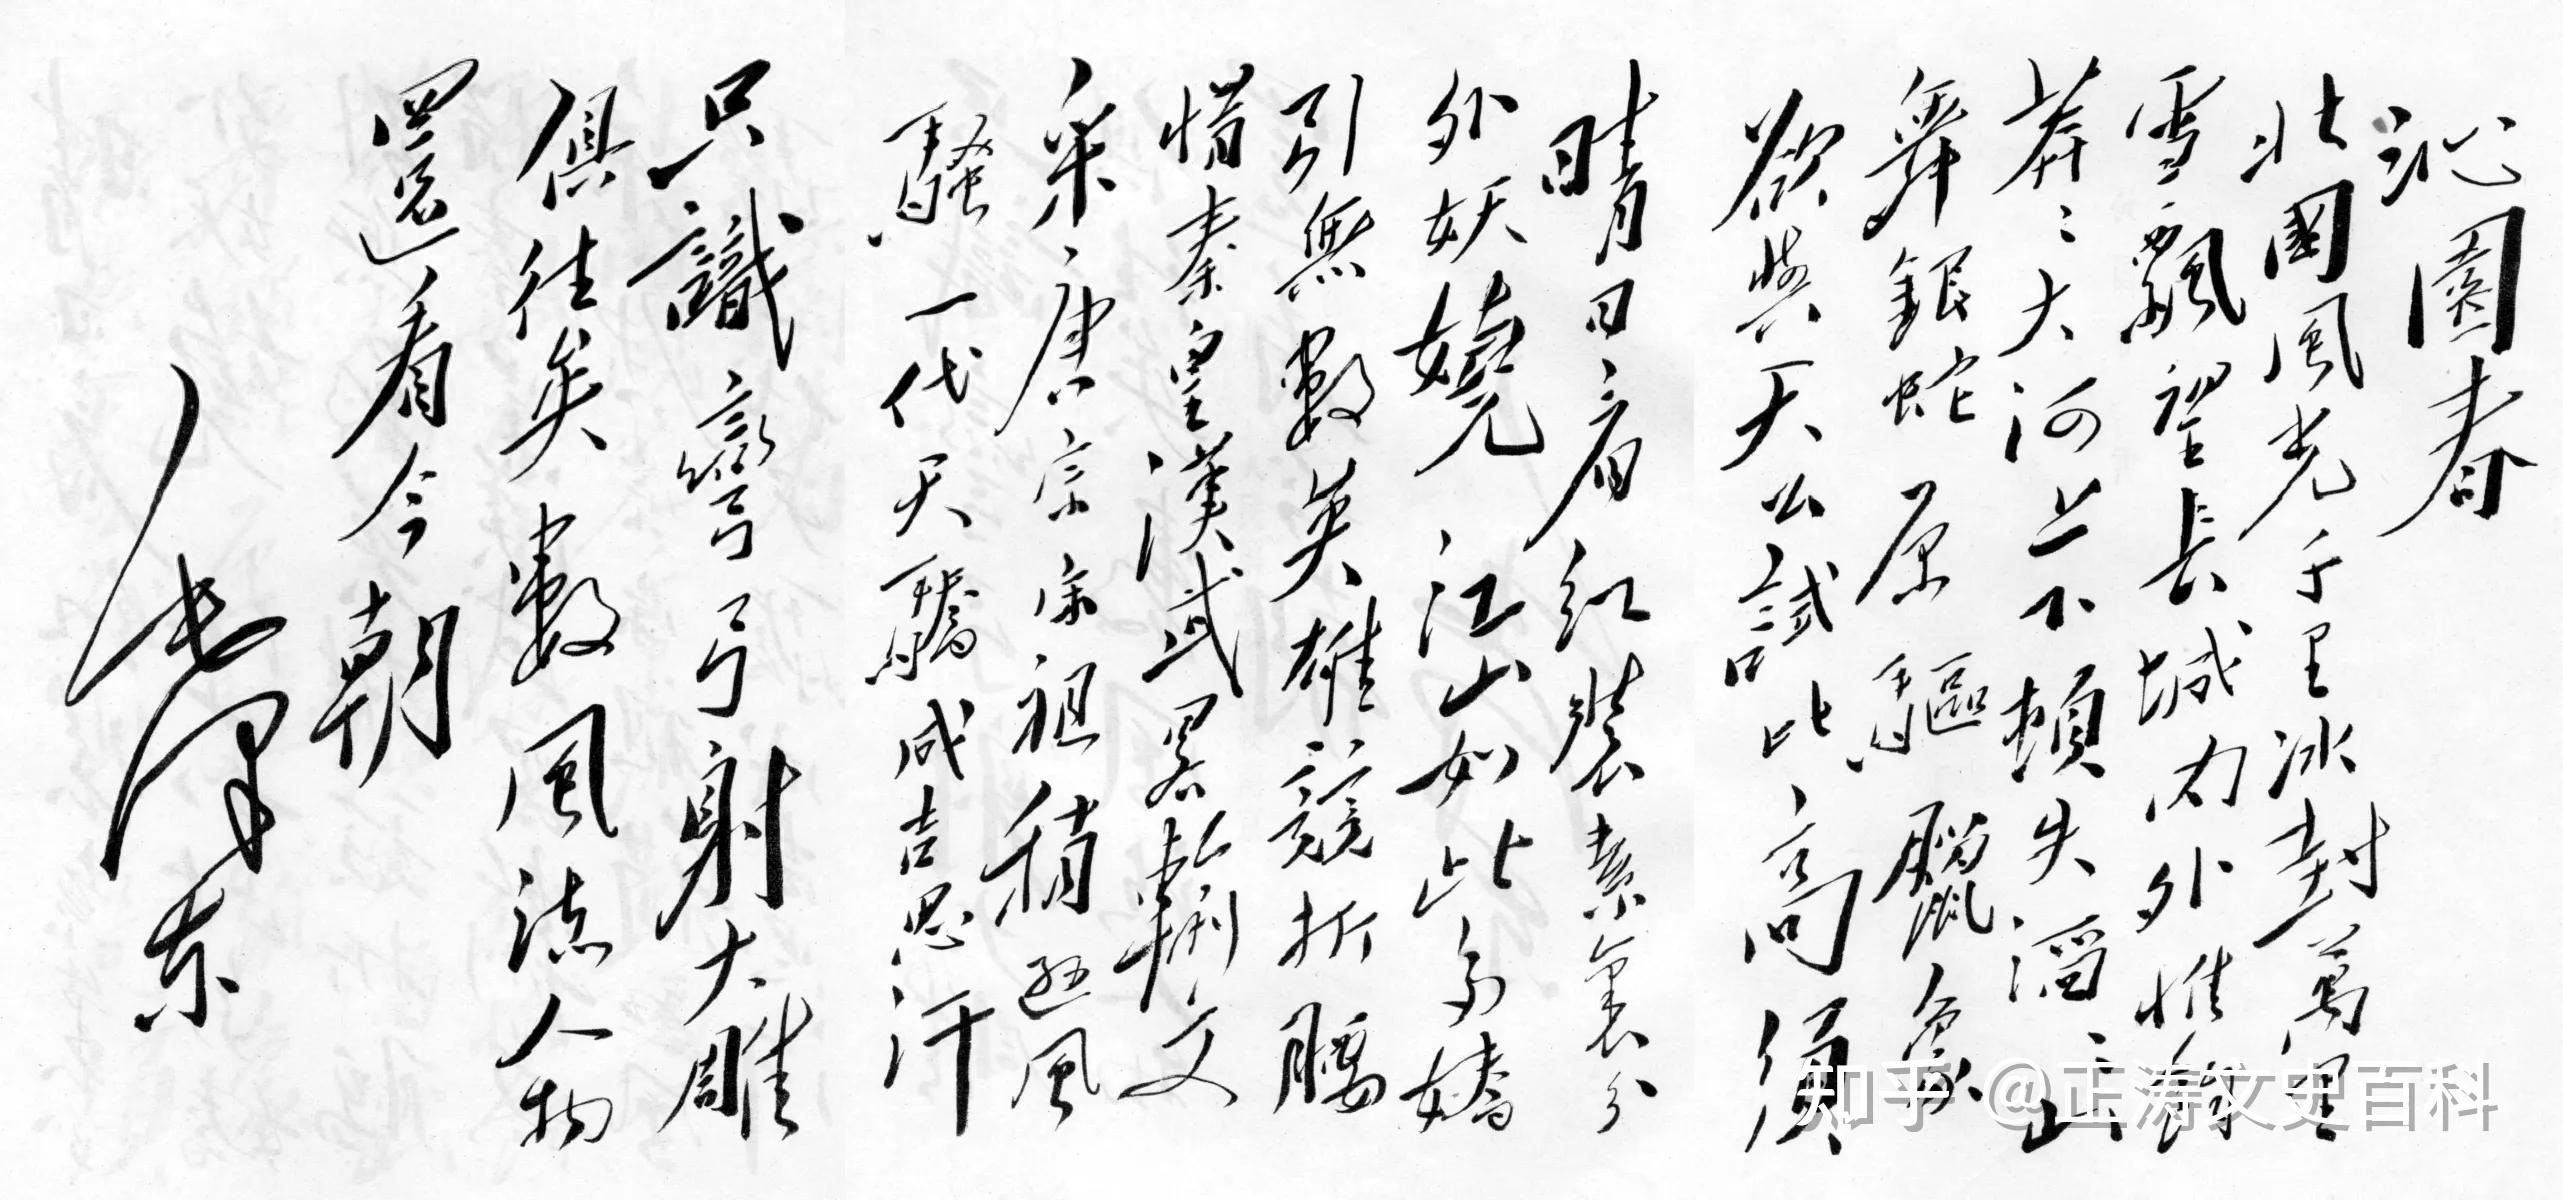 沁園春
北國風光千里冰封萬里
雪飄望長城內外惟餘
莽〻大河上下頓失滔〻山
舞銀蛇原驅臘象
欲與天公試比高須
晴日看紅裝素裹分
外妖嬈江山如此多嬌
引無數英雄競折腰
惜秦皇漢武畧輸文
采唐宗宋祖稍遜風
騷一代天驕成吉思汗
只識彎弓射大雕
俱往矣數風流人物
還看今朝
毛澤東
知乎 @正涛文史百科